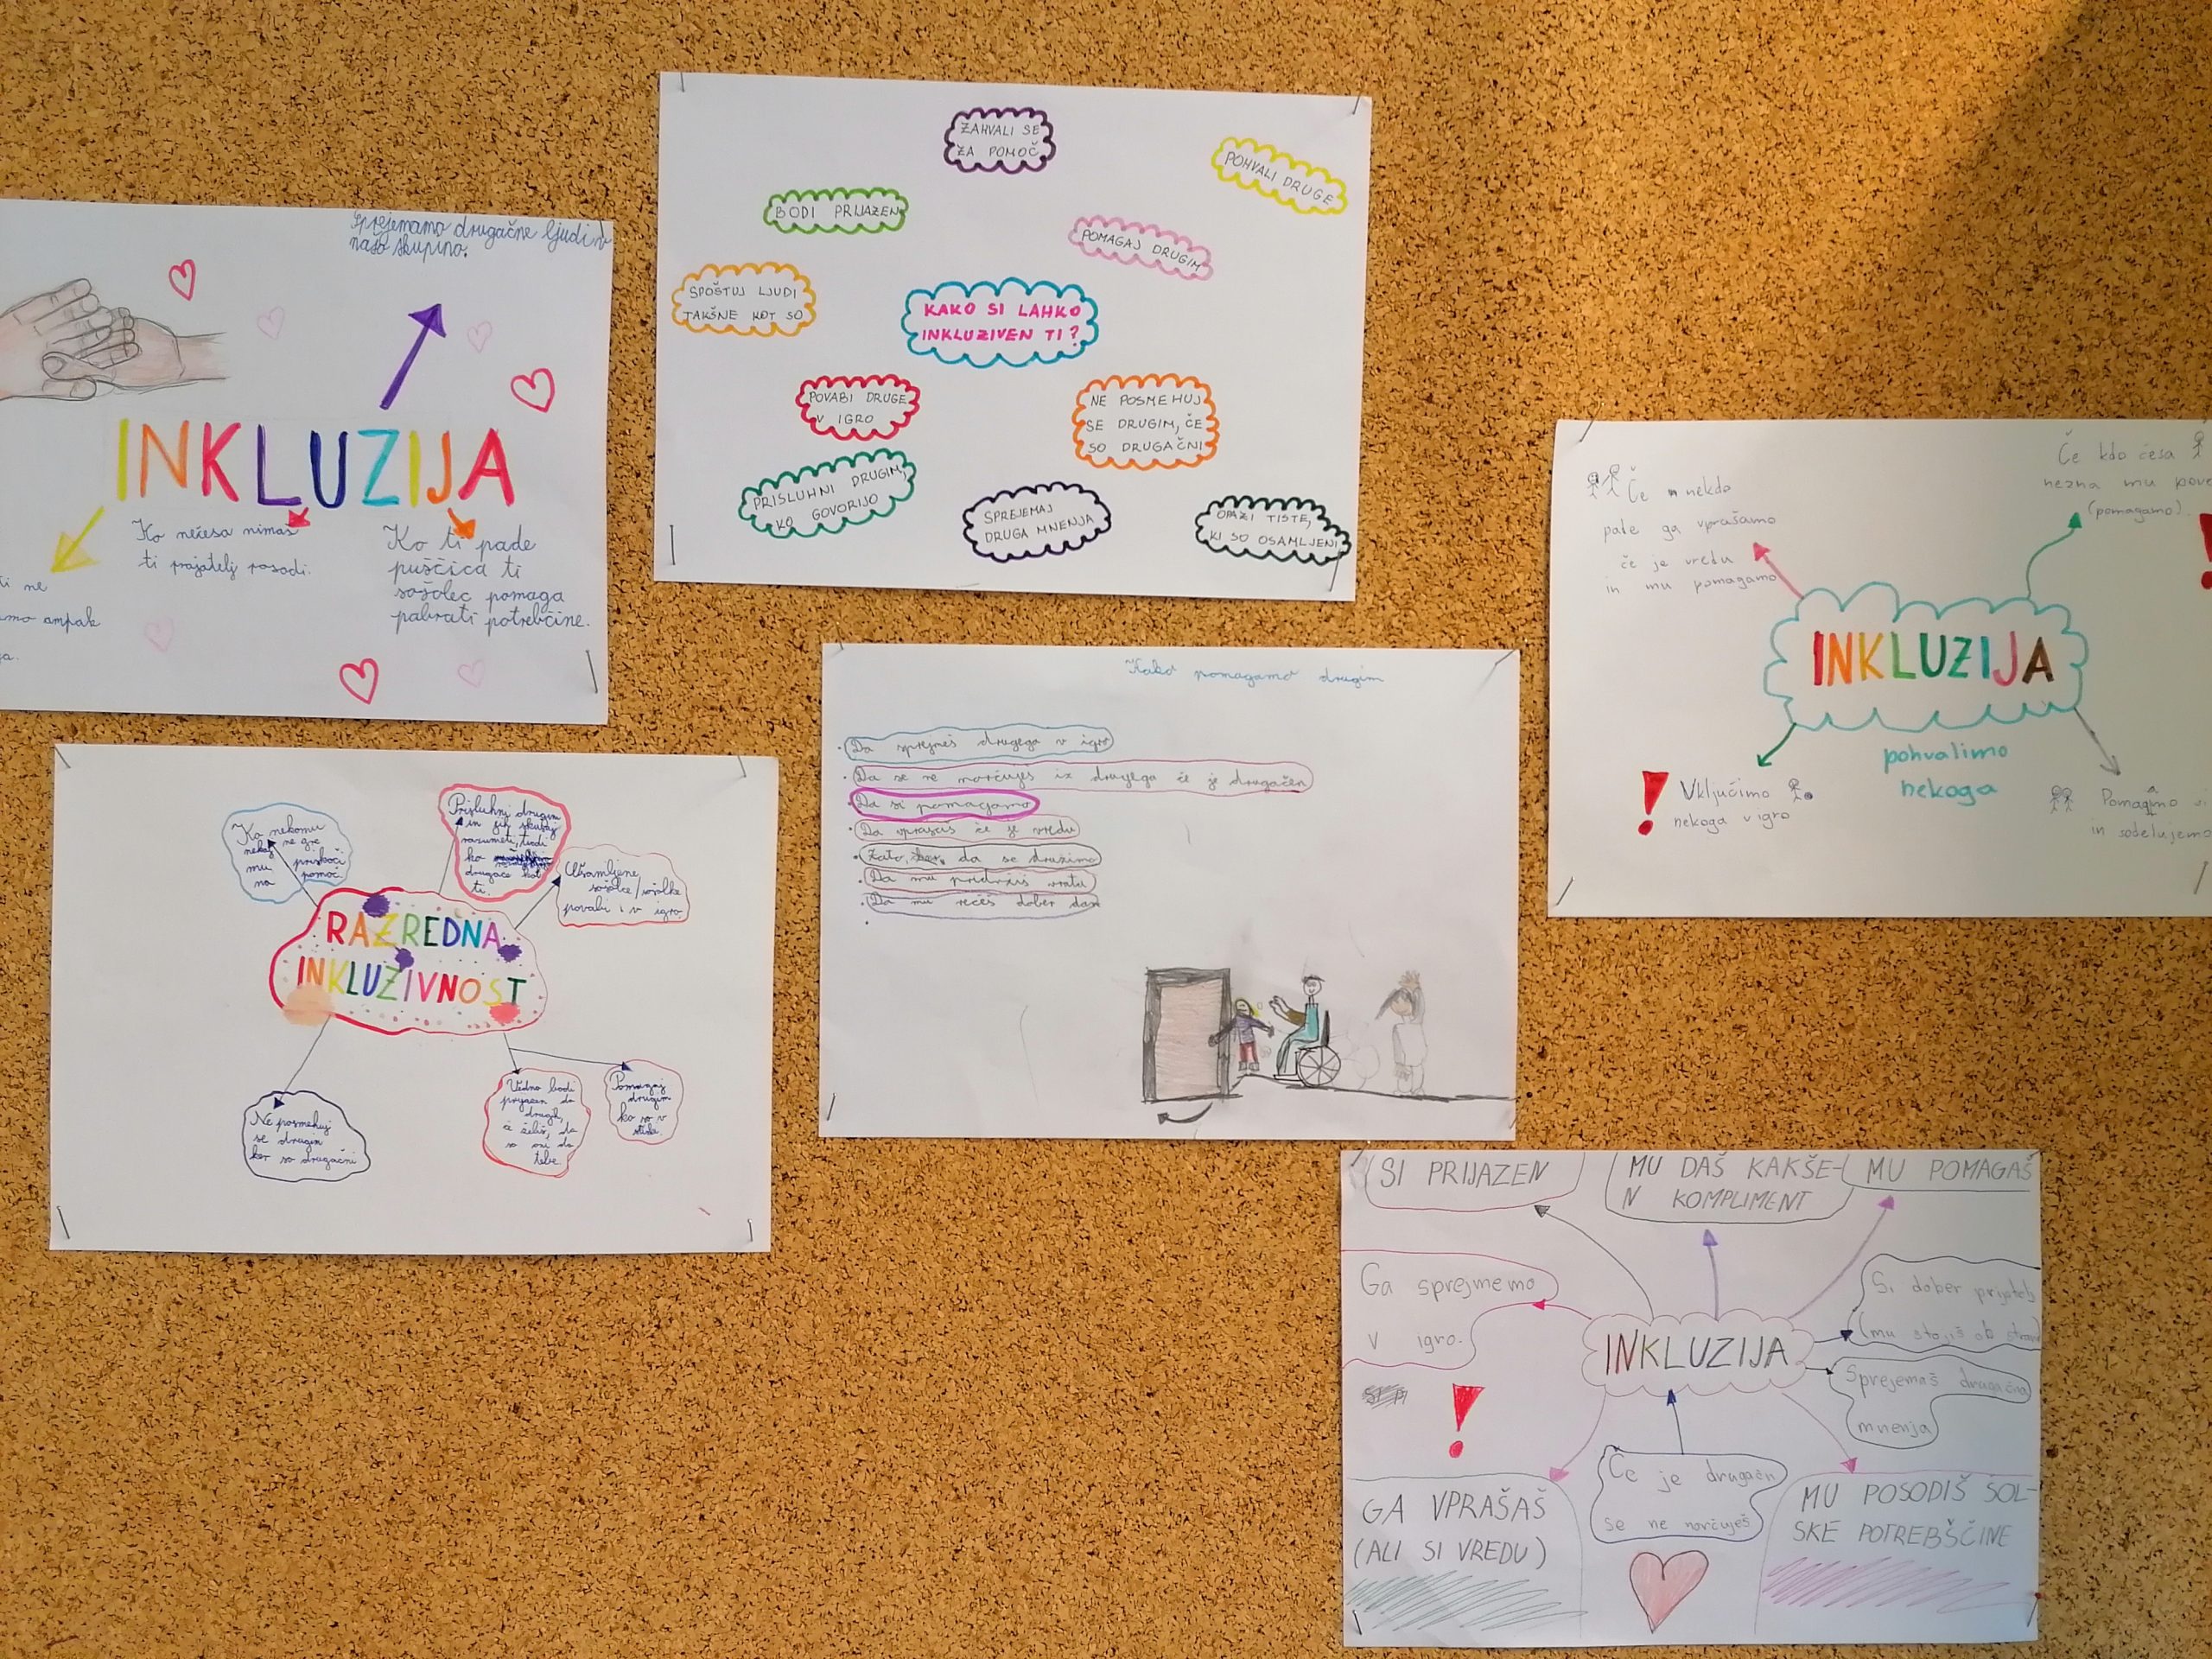 Sprejemamo drugačne ljudi v
našo skupino.
INKLUZIJA
Ko nečesa nimaš
ti prijatelj posodi.
Ko ti pade
puščica ti
sošolec pomaga
pabrati potrebčine.
ti ne
amo ampak
ga.
ZAHVALI SE
ZA POMOČ
POHVALI DRUGE
BODI PRIJAZEN
POMAGAJ DRUGIM
SPOŠTUJ LJUDI
TAKŠNE KOT SO
KAKO SI LAHKO
INKLUZIVEN TI?
POVABI DRUGE
V IGRO
NE POSMEHUJ
SE DRUGIM, ČE
SO DRUGAČNI
PRISLUHNI DRUGIM,
KO GOVORIJO
SPREJEMAJ
DRUGA MNENJA
OPAZI TISTE,
KI SO OSAMLJENI
Če nekdo
pade ga vprašamo
če je vredu
in mu pomagamo
Če kdo česa
nezna mu pove
(pomagamo).
INKLUZIJA
pohvalimo
nekoga
Vključimo
nekoga v igro
Pomagamo si
in sodelujemo
Ko nekomu
nekaj ne gre
mu priskoči
na pomoč.
Prisluhni drugim
in jih skušaj
razumeti, tudi
ko
drugače kot
ti.
Osamljene
sošolce/sošolke
povabi v igro.
RAZREDNA
INKLUZIVNOST
Ne posmehuj
se drugim
ker so drugačni
Vedno bodi
prijazen do
drugih,
če želiš, da
so oni do
tebe.
Pomagaj
drugim
ko so v
stiski.
Kako pomagamo drugim
Da sprejmeš drugega v igro
Da se ne norčuješ iz drugega če je drugačen
Da si pomagamo
Da vprašaš če je vredu
Zato, da se družimo
Da mu pridržiš vrata
Da mu rečeš dober dan
SI PRIJAZEN
MU DAŠ KAKŠE-
N KOMPLIMENT
MU POMAGAŠ
Ga sprejmemo
v igro.
Si dober prijatelj
(mu stojiš ob strani
INKLUZIJA
Sprejemaš drugačna
mnenja
GA VPRAŠAŠ
(ALI SI VREDU)
Če je drugačn
se ne norčuješ
MU POSODIŠ ŠOL-
SKE POTREBŠČINE